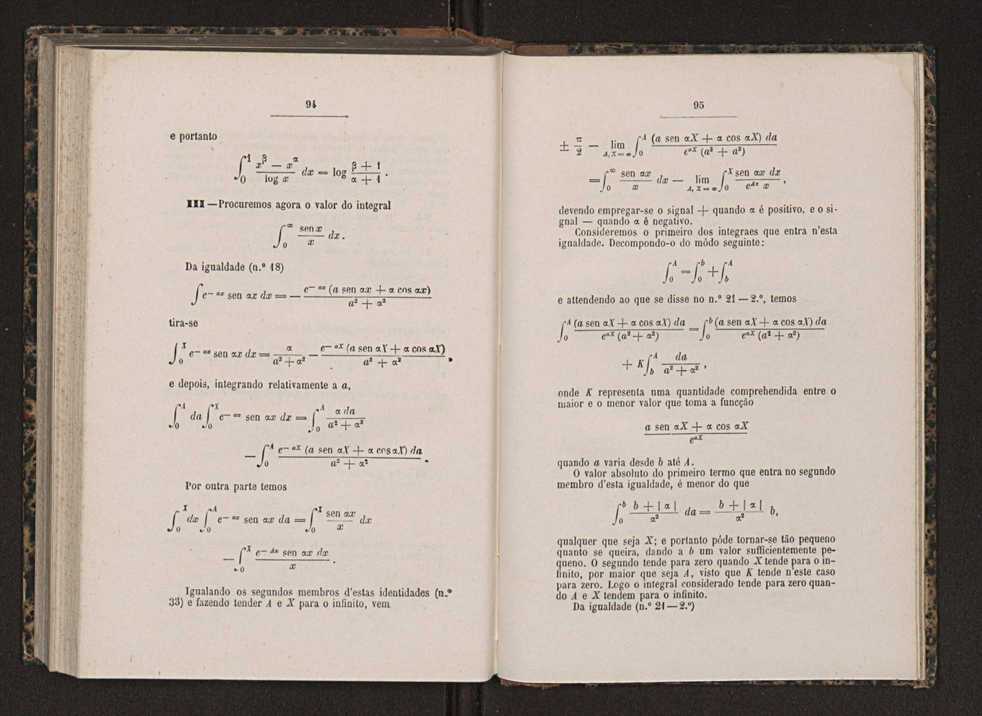 94
e portanto
∫₀¹ (x^β − x^α)/(log x) dx = log (β + 1)/(α + 1) .
III — Procuremos agora o valor do integral
∫₀^∞ (sen x)/x dx .
Da igualdade (n.º 18)
∫ e^(− ax) sen αx dx = − e^(− ax) (a sen αx + α cos αx)/(a² + α²)
tira-se
∫₀^X e^(− ax) sen αx dx = α/(a² + α²) − e^(− aX) (a sen αX + α cos αX)/(a² + α²) ,
e depois, integrando relativamente a a,
∫₀^A da ∫₀^X e^(− ax) sen αx dx = ∫₀^A (α da)/(a² + α²)
− ∫₀^A e^(− aX) (a sen αX + α cos αX) da/(a² + α²) .
Por outra parte temos
∫₀^X dx ∫₀^A e^(− ax) sen αx da = ∫₀^X (sen αx)/x dx
− ∫₀^X (e^(− Ax) sen αx dx)/x .
Igualando os segundos membros d'estas identidades (n.º
33) e fazendo tender A e X para o infinito, vem
95
± π/2 − lim_(A, X = ∞) ∫₀^A (a sen αX + α cos αX) da/(e^(aX) (a² + α²))
= ∫₀^∞ (sen αx)/x dx − lim_(A, X = ∞) ∫₀^X (sen αx dx)/(e^(Ax) x) ,
devendo empregar-se o signal + quando α é positivo, e o si-
gnal — quando α é negativo.
Consideremos o primeiro dos integraes que entra n'esta
igualdade. Decompondo-o do módo seguinte:
∫₀^A = ∫₀^b + ∫_b^A
e attendendo ao que se disse no n.º 21 — 2.º, temos
∫₀^A (a sen αX + α cos αX) da/(e^(aX) (a² + α²)) = ∫₀^b (a sen αX + α cos αX) da/(e^(aX) (a² + α²))
+ K ∫_b^A da/(a² + α²) ,
onde K representa uma quantidade comprehendida entre o
maior e o menor valor que toma a funcção
(a sen αX + α cos αX)/e^(aX)
quando a varia desde b até A.
O valor absoluto do primeiro termo que entra no segundo
membro d'esta igualdade, é menor do que
∫₀^b (b + | α |)/α² da = (b + | α |)/α² b,
qualquer que seja X; e portanto póde tornar-se tão pequeno
quanto se queira, dando a b um valor sufficientemente pe-
queno. O segundo tende para zero quando X tende para o in-
finito, por maior que seja A, visto que K tende n'este caso
para zero. Logo o integral considerado tende para zero quan-
do A e X tendem para o infinito.
Da igualdade (n.º 21 — 2.º)